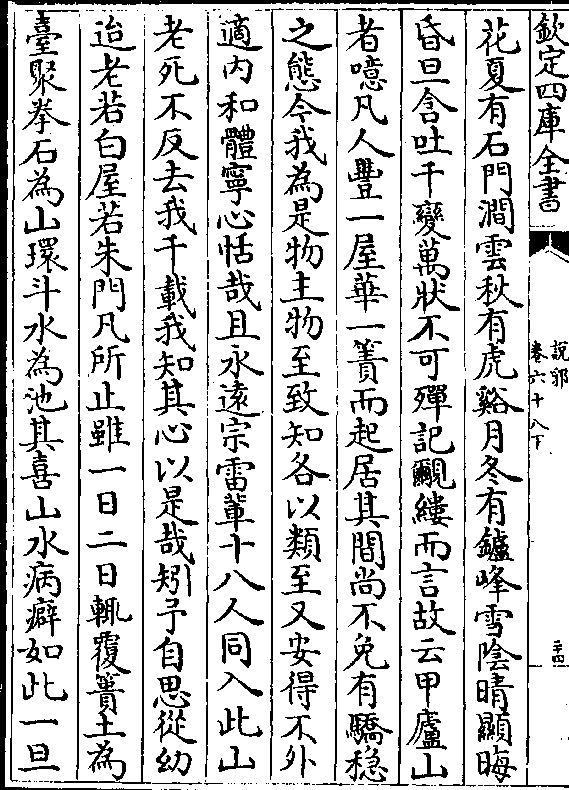 欽定四庫全書
說郛
卷六十八下
二十四
花夏有石門澗雲秋有虎谿月冬有鑪峰雪陰晴顯晦
昏旦含吐千變萬狀不可殫記覼縷而言故云甲廬山
者噫凡人豐一屋華一簀而起居其間尚不免有驕穩
之態今我為是物主物至致知各以類至又安得不外
適內和體寧心恬哉且永遠宗雷輩十八人同入此山
老死不反去我千載我知其心以是哉矧予自思從幼
迨老若白屋若朱門凡所止雖一日二日輒覆簣土為
臺聚拳石為山環斗水為池其喜山水病癖如此一旦